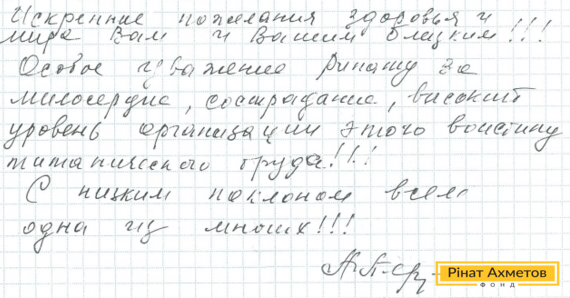 Искренние пожелания здоровья и
мира Вам и Вашим близким!!!
Особое уважение Ринату за
милосердие, сострадание, високий
уровень организации этого воистину
титанического труда!!!
С низким поклоном всем
одна из многих!!!
Рінат Ахметов
ФОНД